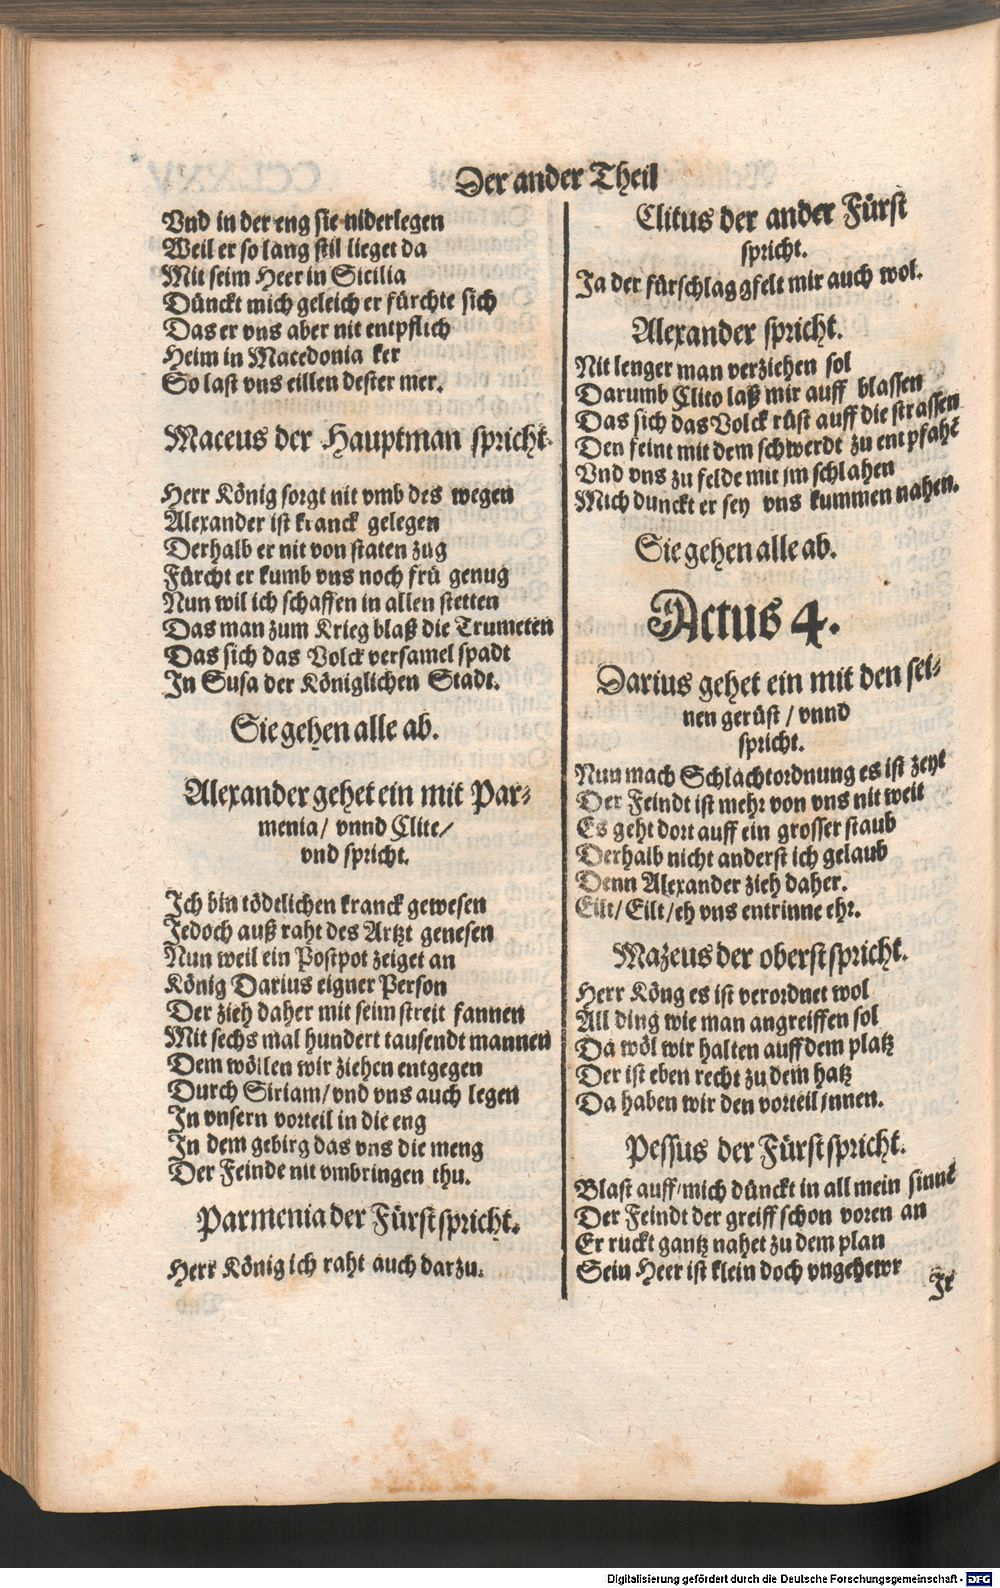 Der ander Theil
Vnd in der eng sie niderlegen
Weil er so lang stil lieget da
Mit seim Heer in Sicilia
Dünckt mich geleich er fürchte sich
Das er vns aber nit entpflich
Heim in Macedonia ker
So last vns eillen dester mer.
Maceus der Hauptman spricht.
Herr König sorgt nit vmb des wegen
Alexander ist kranck gelegen
Derhalb er nit von staten zug
Fürcht er kumb vns noch frü genug
Nun wil ich schaffen in allen stetten
Das man zum Krieg blaß die Trumeten
Das sich das Volck versamel spadt
In Susa der Königlichen Stadt.
Sie gehen alle ab.
Alexander gehet ein mit Par-
menia/ vnnd Clite/
vnd spricht.
Ich bin tödtlichen kranck gewesen
Jedoch auß raht des Artzt genesen
Nun weil ein Postpot zeiget an
König Darius eigner Person
Der zieh daher mit seim streit fannen
Mit sechs mal hundert tausendt mannen
Dem wöllen wir ziehen entgegen
Durch Siriam/ vnd vns auch legen
In vnsern vorteil in die eng
In dem gebirg das vns die meng
Der Feinde nit vmbringen thu.
Parmenia der Fürst spricht.
Herr König ich raht auch darzu.
Clitus der ander Fürst
spricht.
Ja der fürschlag gfelt mir auch wol.
Alexander spricht.
Nit lenger man verziehen sol
Darumb Clito laß mir auff blassen
Das sich das Volck rüst auff die strassen
Den feint mit dem schwerdt zu entpfahē
Vnd vns zu felde mit jm schlahen
Mich dunckt er sey vns kummen nahen.
Sie gehen alle ab.
Actus 4.
Darius gehet ein mit den sei-
nen gerüst / vnnd
spricht.
Nun mach Schlachtordnung es ist zeyt
Der Feindt ist mehr von vns nit weit
Es geht dort auff ein grosser staub
Derhalb nicht anderst ich gelaub
Denn Alexander zieh daher.
Eilt/ Eilt/ eh vns entrinne ehr.
Mazeus der oberst spricht.
Herr Köng es ist verordnet wol
All ding wie man angreiffen sol
Da wöl wir halten auff dem platz
Der ist eben recht zu dem hatz
Da haben wir den vorteil jnnen.
Pessus der Fürst spricht.
Blast auff/ mich dünckt in all mein sinnē
Der Feindt der greiff schon voren an
Er ruckt gantz nahet zu dem plan
Sein Heer ist klein doch vngehewr
Ir
Digitalisierung gefördert durch die Deutsche Forschungsgemeinschaft - DFG